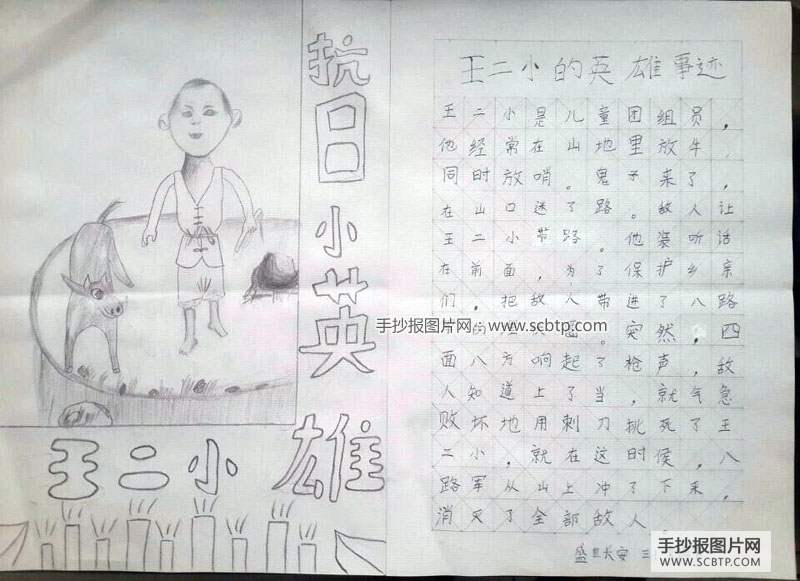 抗日小英雄
王二小
王二小的英雄事迹
王二小是儿童团组员，
他经常在山地里放牛
同时放哨。鬼子来了，
在山口迷了路。敌人让
王二小带路。他装听话
在前面，为了保护乡亲
们，把敌人带进了八路
手抄报图片网：www.scbtp.com
圈。突然，四
面八方响起了枪声，敌
人知道上了当，就气急
败坏地用刺刀挑死了王
二小，就在这时候，八
路军从山上冲了下来，
消灭了全部敌人
盛世长安 三
手抄报图片网
WWW.SCBTP.COM